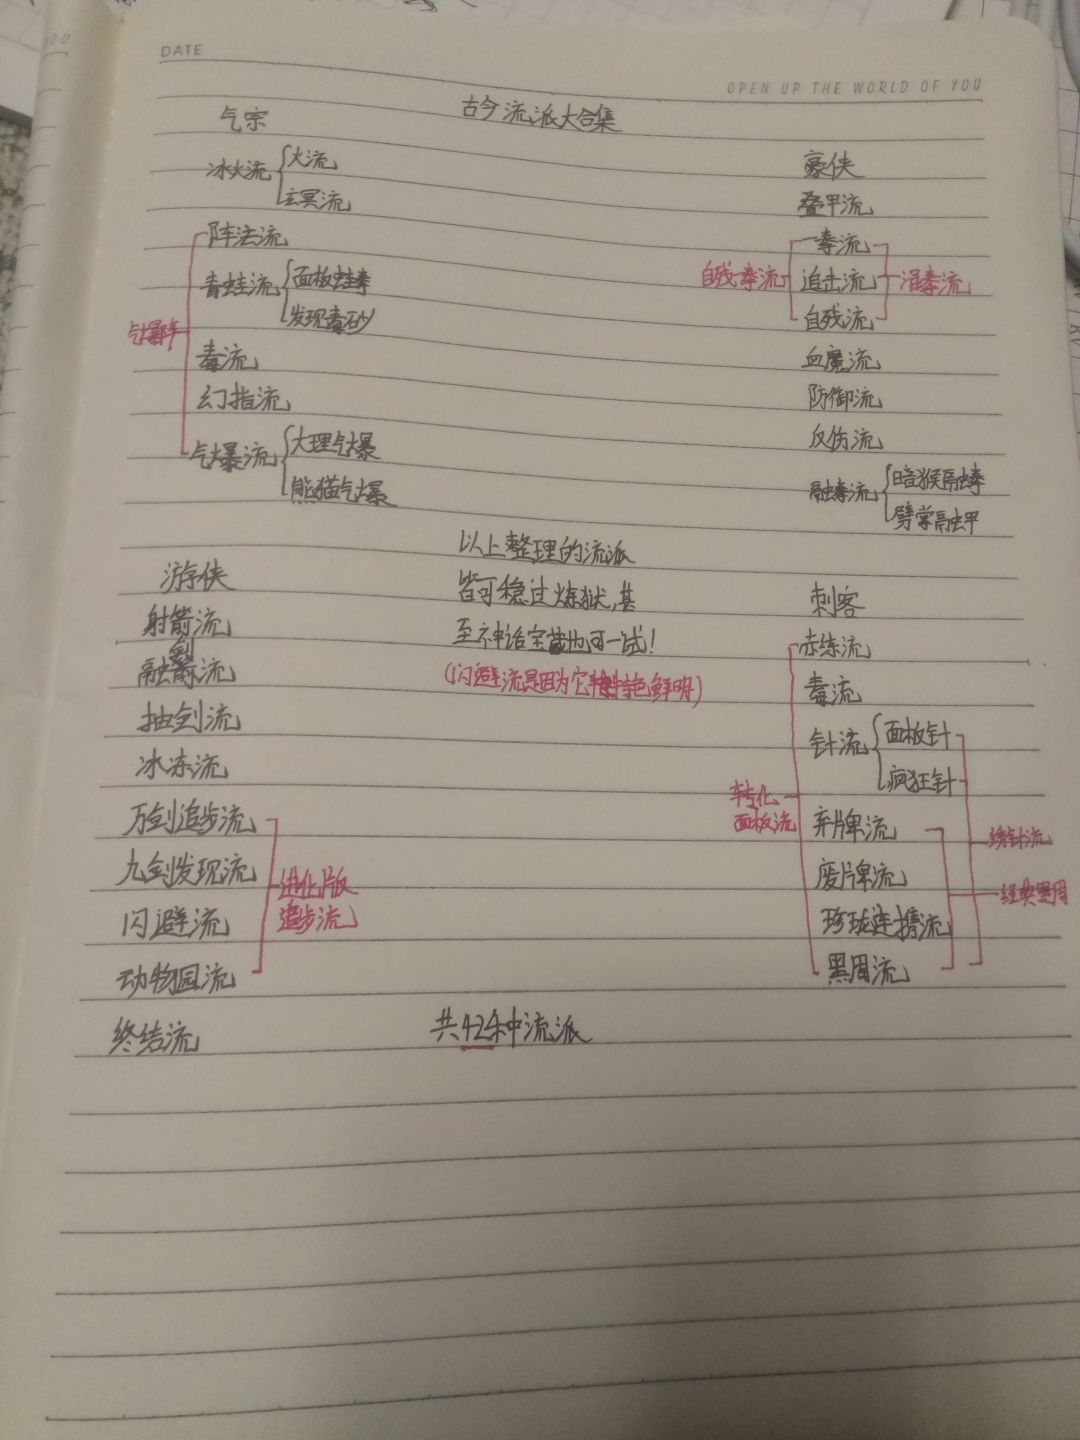 YOU
DATE
OPEN UP THE WORLD OF YOU
古今流派大合集
气宗
冰火流
火流
玄冥流
阵法流
青蛙流
面板蛙拳
发现毒砂
气爆阵
毒流
幻指流
气爆流
大理气爆
熊猫气爆
豪侠
叠甲流
自残拳流
一拳流
追击流
自残流
混拳流
血魔流
防御流
反伤流
融拳流
暗猴融拳
劈掌融甲
以上整理的流派
皆可稳过炼狱,甚
至神话宝藏也可一试!
(闪避流是因为它特色鲜明)
游侠
射箭流
融剑流
抽剑流
冰冻流
万剑追步流
九剑发现流
闪避流
动物园流
进化版
追步流
终结流
刺客
赤练流
毒流
针流
面板针
疯狂针
转化
面板流
弃牌流
废牌流
珍珑连携流
黑周流
绣针流
经典黑周
共42余种流派